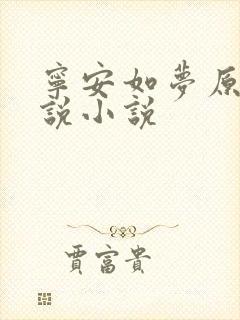 寧安如夢原
說小說
賈富貴